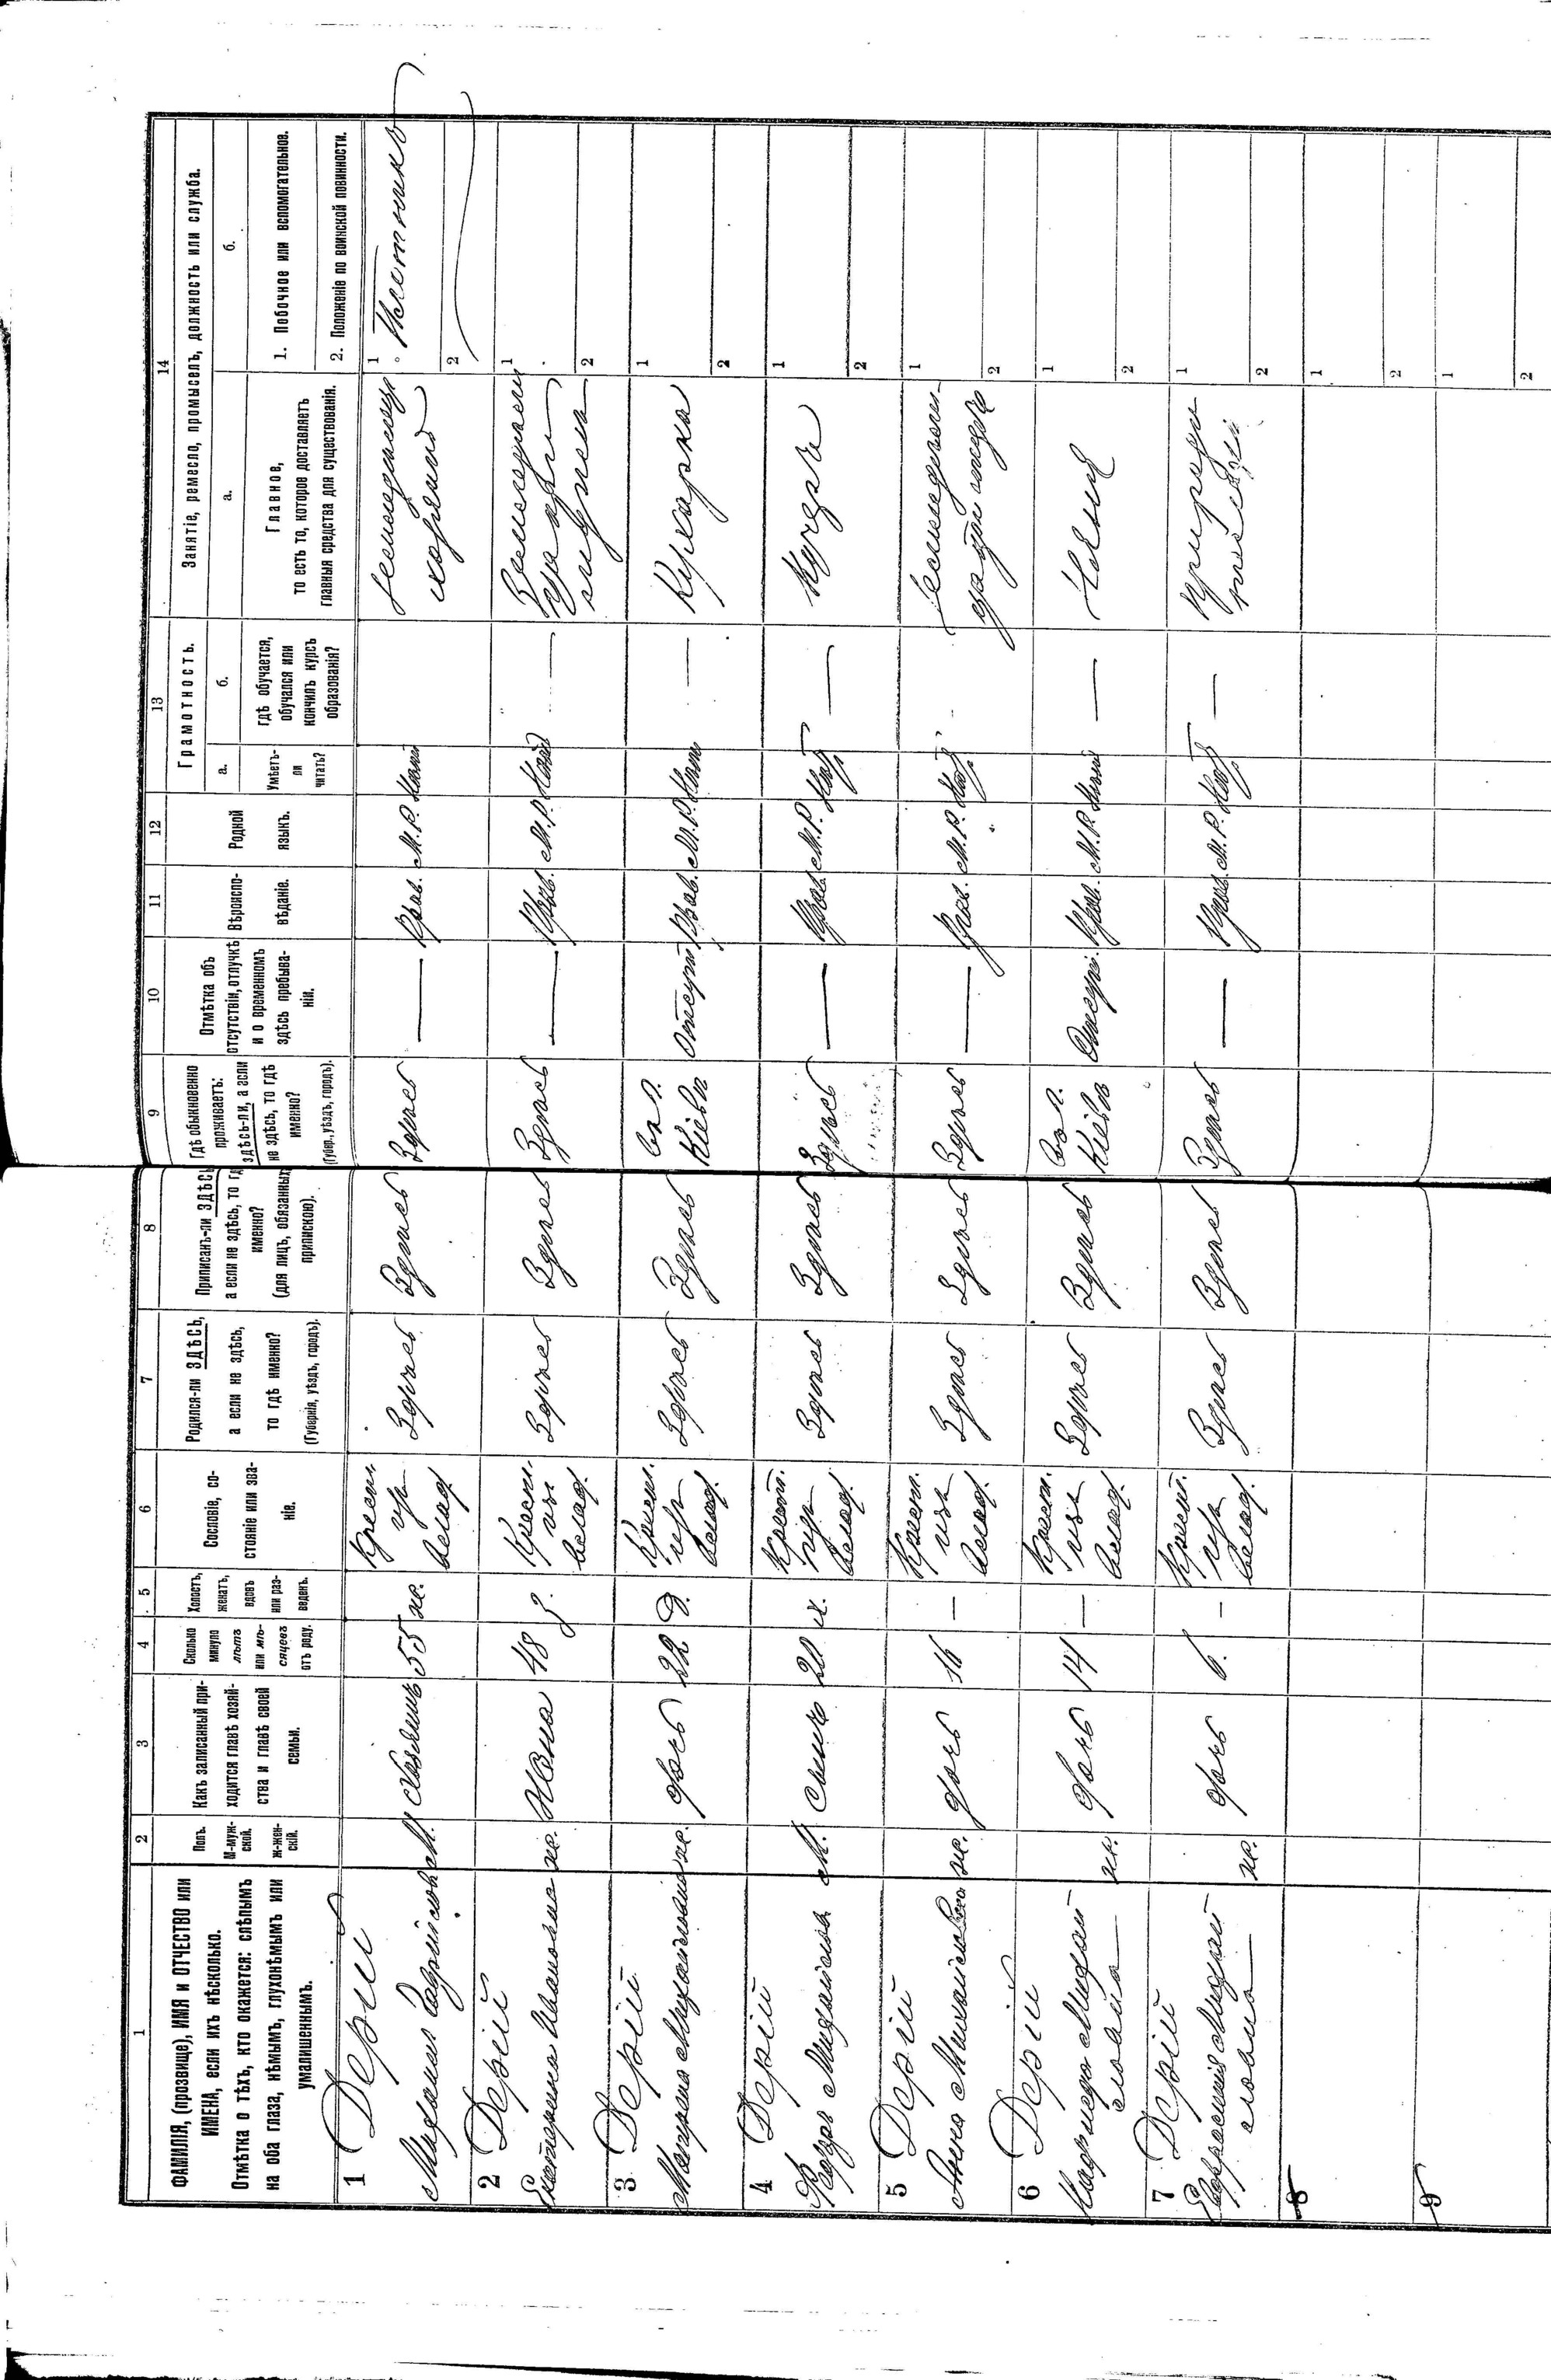 1
ФАМИЛІЯ, (прозвище), ИМЯ и ОТЧЕСТВО или
ИМЕНА, если ихъ нѣсколько.
Отмѣтка о тѣхъ, кто окажется: слѣпымъ
на оба глаза, нѣмымъ, глухонѣмымъ или
умалишеннымъ.
2
Полъ.
М-муж-
ской.
Ж-жен-
скій.
3
Какъ записанный при-
ходится главѣ хозяй-
ства и главѣ своей
семьи.
4
Сколько
минуло
лѣтъ
или мѣ-
сяцевъ
отъ роду.
5
Холостъ,
женатъ,
вдовъ
или раз-
веденъ.
6
Сословіе, со-
стояніе или зва-
ніе.
7
Родился-ли ЗДѢСЬ,
а если не здѣсь,
то гдѣ именно?
(Губернія, уѣздъ, городъ).
8
Приписанъ-ли ЗДѢСЬ
а если не здѣсь, то гд
именно?
(для лицъ, обязанных
припискою).
9
Гдѣ обыкновенно
проживаетъ:
здѣсь-ли, а если
не здѣсь, то гдѣ
именно?
(Губер., уѣздъ, городъ).
10
Отмѣтка объ
отсутствіи, отлучкѣ
и о временномъ
здѣсь пребыва-
ніи.
11
Вѣроиспо-
вѣданіе.
12
Родной
языкъ.
13
Грамотность.
а.
Умѣетъ-
ли
читать?
б.
гдѣ обучается,
обучался или
кончилъ курсъ
образованія?
14
Занятіе, ремесло, промыселъ, должность или служба.
а.
Главное,
то есть то, которое доставляетъ
главныя средства для существованія.
б.
1. Побочное или вспомогательное.
2. Положеніе по воинской повинности.
1 Дерій
Михаил М. Хозяинъ 55 ж. Крест. из влад. Здѣсь Здѣсь Здѣсь — Прав. М.Р. 1 Плотникъ
2
2 Дерій
Екатерина Ивановна ж. Жена 48 з. Крест. из влад. Здѣсь Здѣсь Здѣсь — Прав. М.Р. — 1
2
3 Дерій
Матрена Михайловна ж. дочь 22 д. Крест. из влад. Здѣсь Здѣсь в г. Кіевѣ Отсут. Прав. М.Р. — Кухарка 1
2
4 Дерій
Федоръ м. сынъ 20 х. Крест. из влад. Здѣсь Здѣсь Здѣсь — Прав. М.Р. — Кучеръ 1
2
5 Дерій
Анна Михайловна ж. дочь 16 — Крест. изъ влад. Здѣсь Здѣсь Здѣсь — Прав. М.Р. 1
2
6 Дерій
Михай
ловна ж. дочь 14 — Крест. изъ влад. Здѣсь Здѣсь в г. Кіевѣ Отсут. Прав. М.Р. — 1
2
7 Дерій
Михай
ловна ж. дочь 6. — Крест. изъ влад. Здѣсь Здѣсь Здѣсь — Прав. М.Р. — 1
2
8 1
2
9 1
2